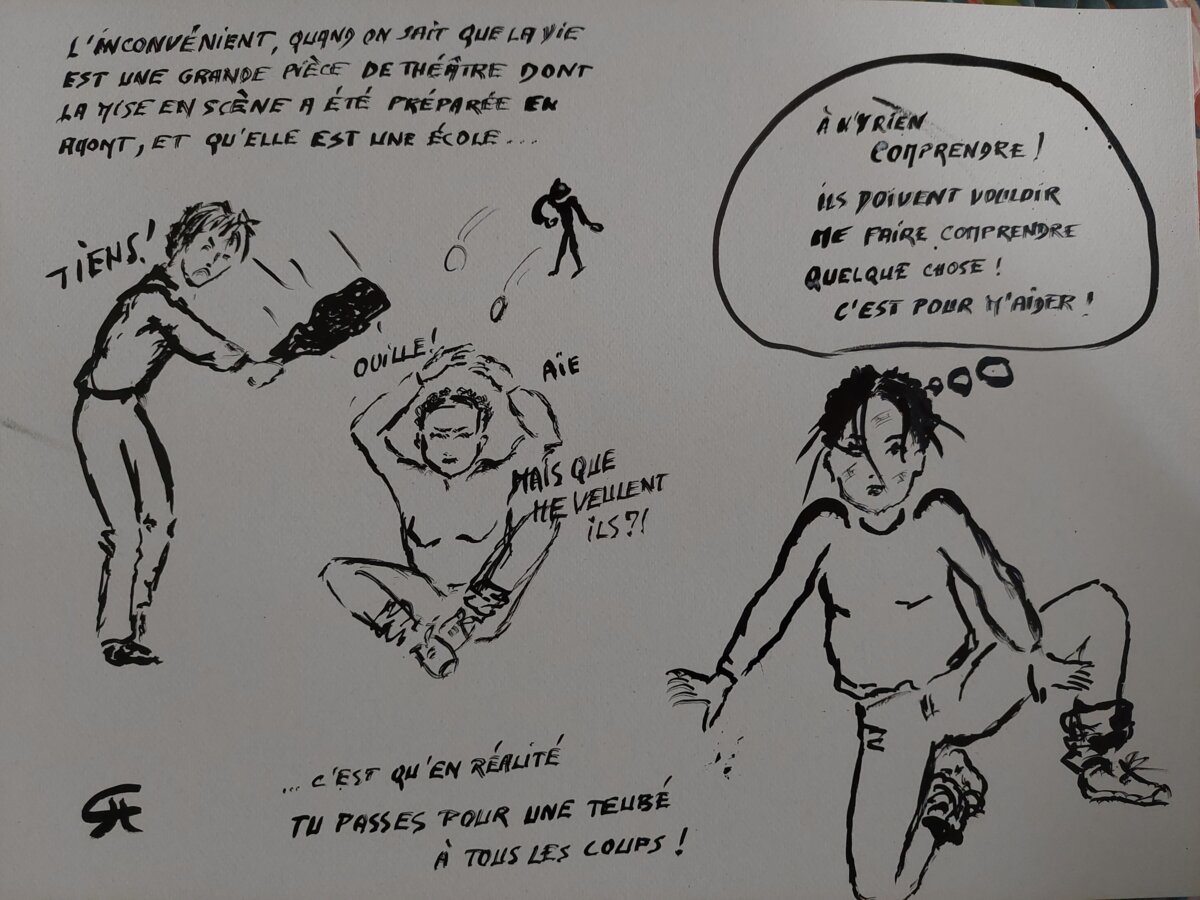 L'INCONVÉNIENT, QUAND ON SAIT QUE LA VIE
EST UNE GRANDE PIÈCE DE THÉÂTRE DONT
LA MISE EN SCÈNE A ÉTÉ PRÉPARÉE EN
AMONT, ET QU'ELLE EST UNE ÉCOLE...
TIENS!
OUILLE!
AÏE
MAIS QUE
ME VEULENT
ILS?!
À N'Y RIEN
COMPRENDRE!
ILS DOIVENT VOULOIR
ME FAIRE COMPRENDRE
QUELQUE CHOSE!
C'EST POUR M'AIDER!
...C'EST QU'EN RÉALITÉ
TU PASSES POUR UNE TEUBÉ
À TOUS LES COUPS!